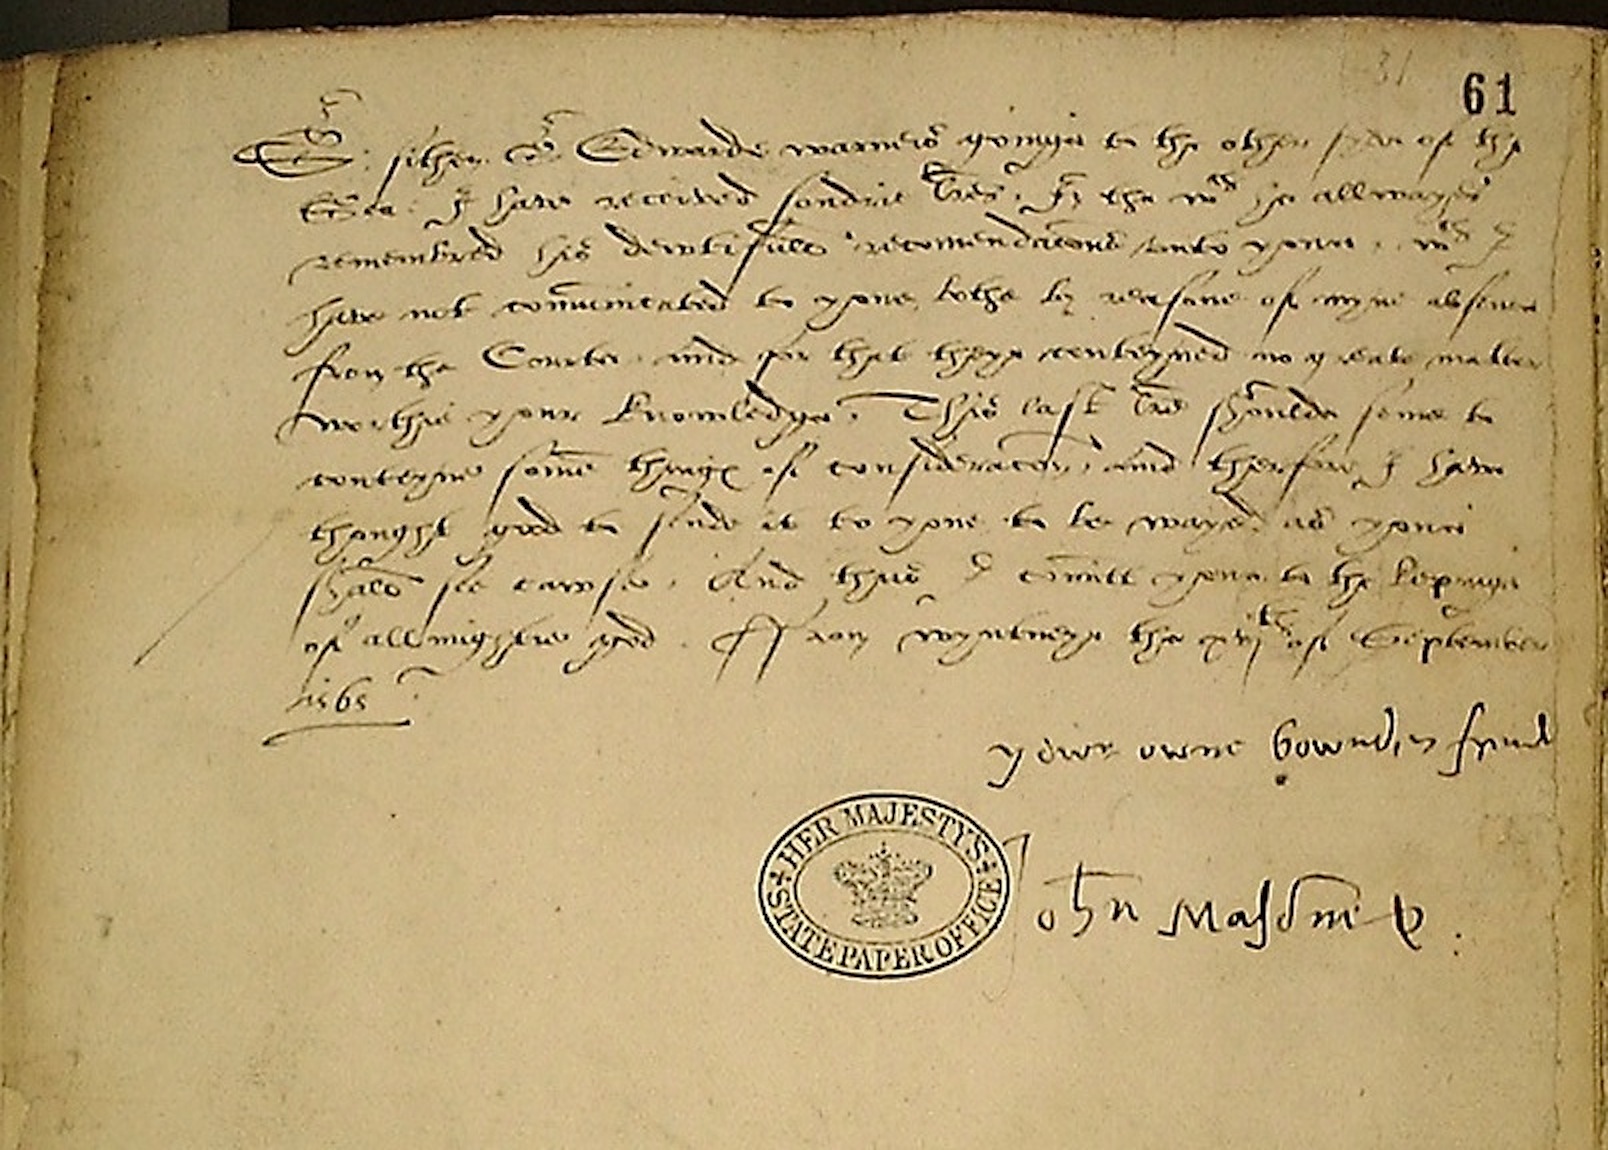 31
61
Sr. sithen Sr Edwarde warners goinge to the other syde of the
Sea. I have received sondrie lres. In the wch he allwayes
remembred his dewtifull recomendacons unto youe, wch I
have not comunicated to youe, bothe by reasone of myne absence
from the Courte and for that theye conteyned no greate matter
worthie your knowledge. This last lre shoulde seme to
conteyne some thinge of consideracon, and therfore I have
thought good to sende it to youe to be wayed as youe
shall see cawse. And thus I comitt youe to the kepinge
of allmightie god. From wyntneye the xvjth of September
1565
yowr owne bownden frynd
John Masone k
HER MAJESTY'S STATE PAPER OFFICE